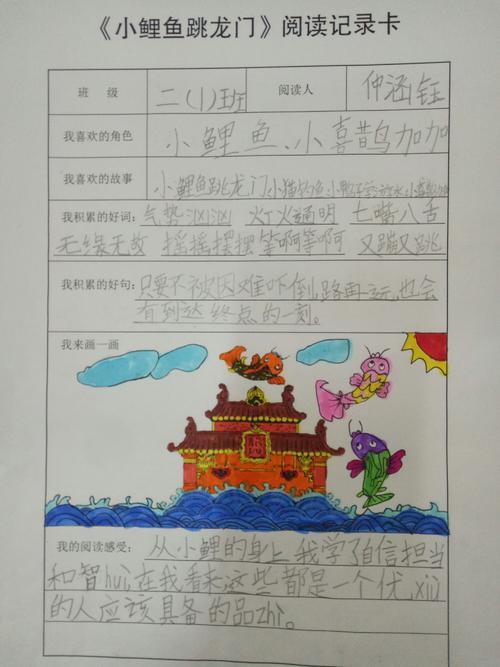 《小鲤鱼跳龙门》阅读记录卡
班 级 二(1)班 阅读人 仲涵钰
我喜欢的角色 小鲤鱼、小喜鹊加加
我喜欢的故事 小鲤鱼跳龙门小猫钓鱼小鸭
我积累的好词: 气势汹汹 灯火通明 七嘴八舌
无缘无故 摇摇摆摆 等啊等啊 又蹦又跳
我积累的好句: 只要不被困难吓倒,路再远,也会
有到达终点的一刻。
我来画一画
我的阅读感受: 从小鲤的身上我学了自信担当
和智hui,在我看来,这些都是一个优xiu
的人应该具备的品zhi。